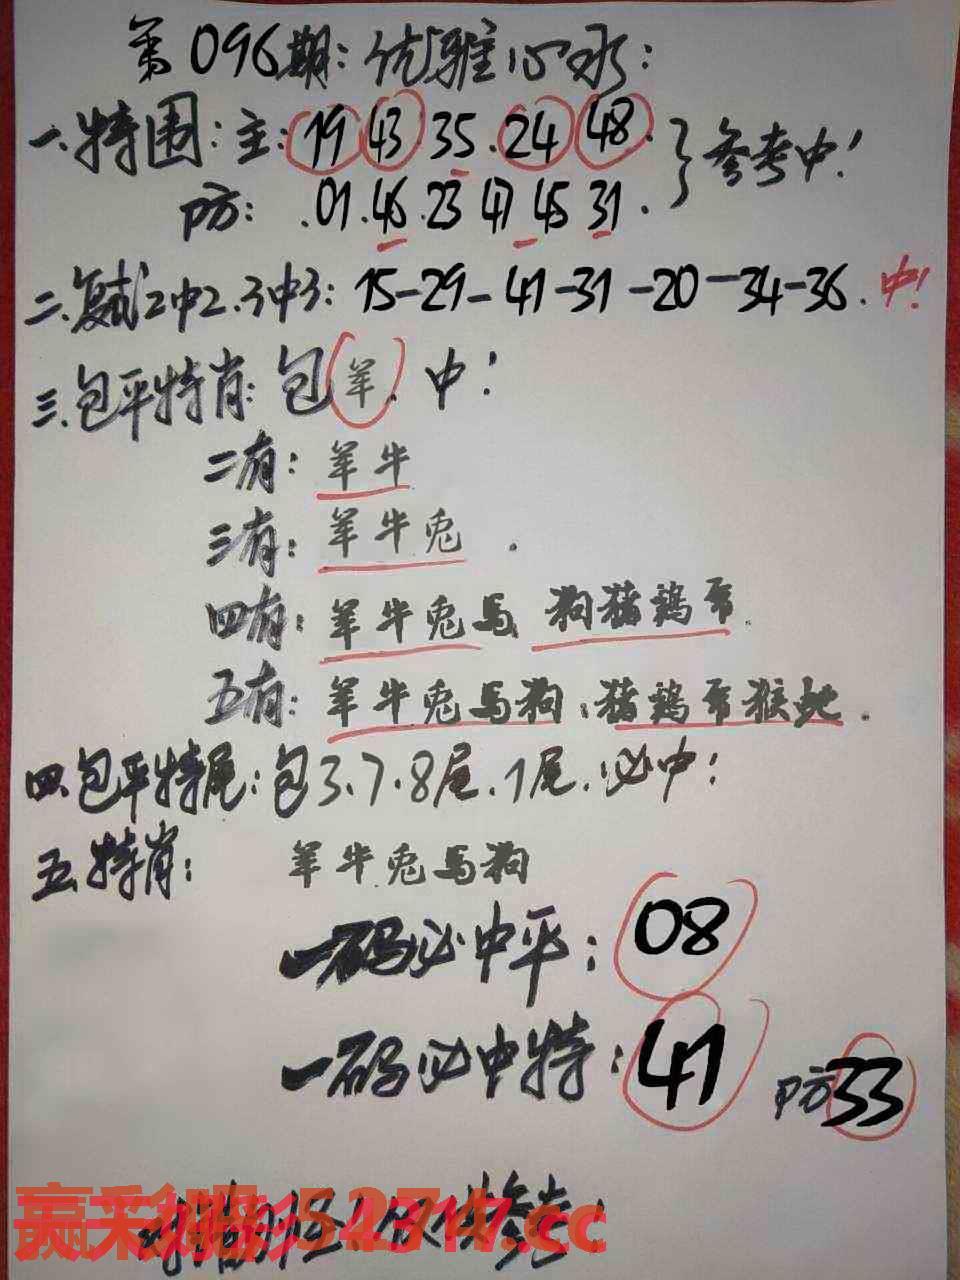 第096期:优雅心水:
一.特围:主:19 43 35.24 48.}参考中!
防:.01.46.23 47 45 31.
二.复式2中2.3中3:15-29-41-31-20-34-36.中!
三.包平特肖:包羊.中!
二有:羊牛
三有:羊牛兔.
四有:羊牛兔马 狗猪鸡
五有:羊牛兔马狗:猪鸡 猴蛇.
四.包平特尾:包3.7.8尾.1尾.必中!
五.特肖:羊牛兔马狗
一码必中平:08
一码必中特:41 防33
赢彩吧52717.cc
仅供参考!